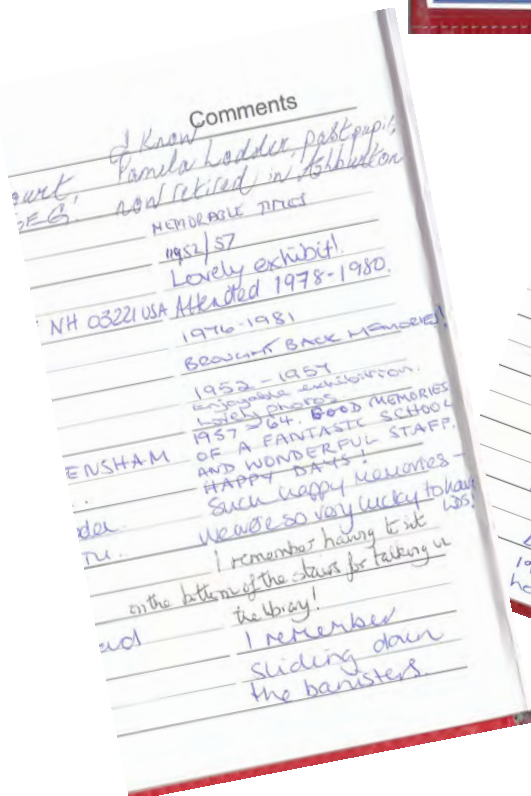 Comments
I Know
ourt. Pamela Hodder, past pupil,
now retired, in Ashburton
MEMORABLE TIMES
1952/57
Lovely exhibit!
NH 03221 USA Attended 1978-1980.
1976-1981
BROUGHT BACK MEMORIES!
1952-1957
Enjoyable exhibition.
Lovely photos
1957 → 64. GOOD MEMORIES
ENSHAM OF A FANTASTIC SCHOOL
AND WONDERFUL STAFF.
HAPPY DAYS!
Such happy memories -
We were so very lucky to have
LDS!
I remember having to sit
on the bottom of the stairs for talking in
the library!
I remember
sliding down
the banisters.